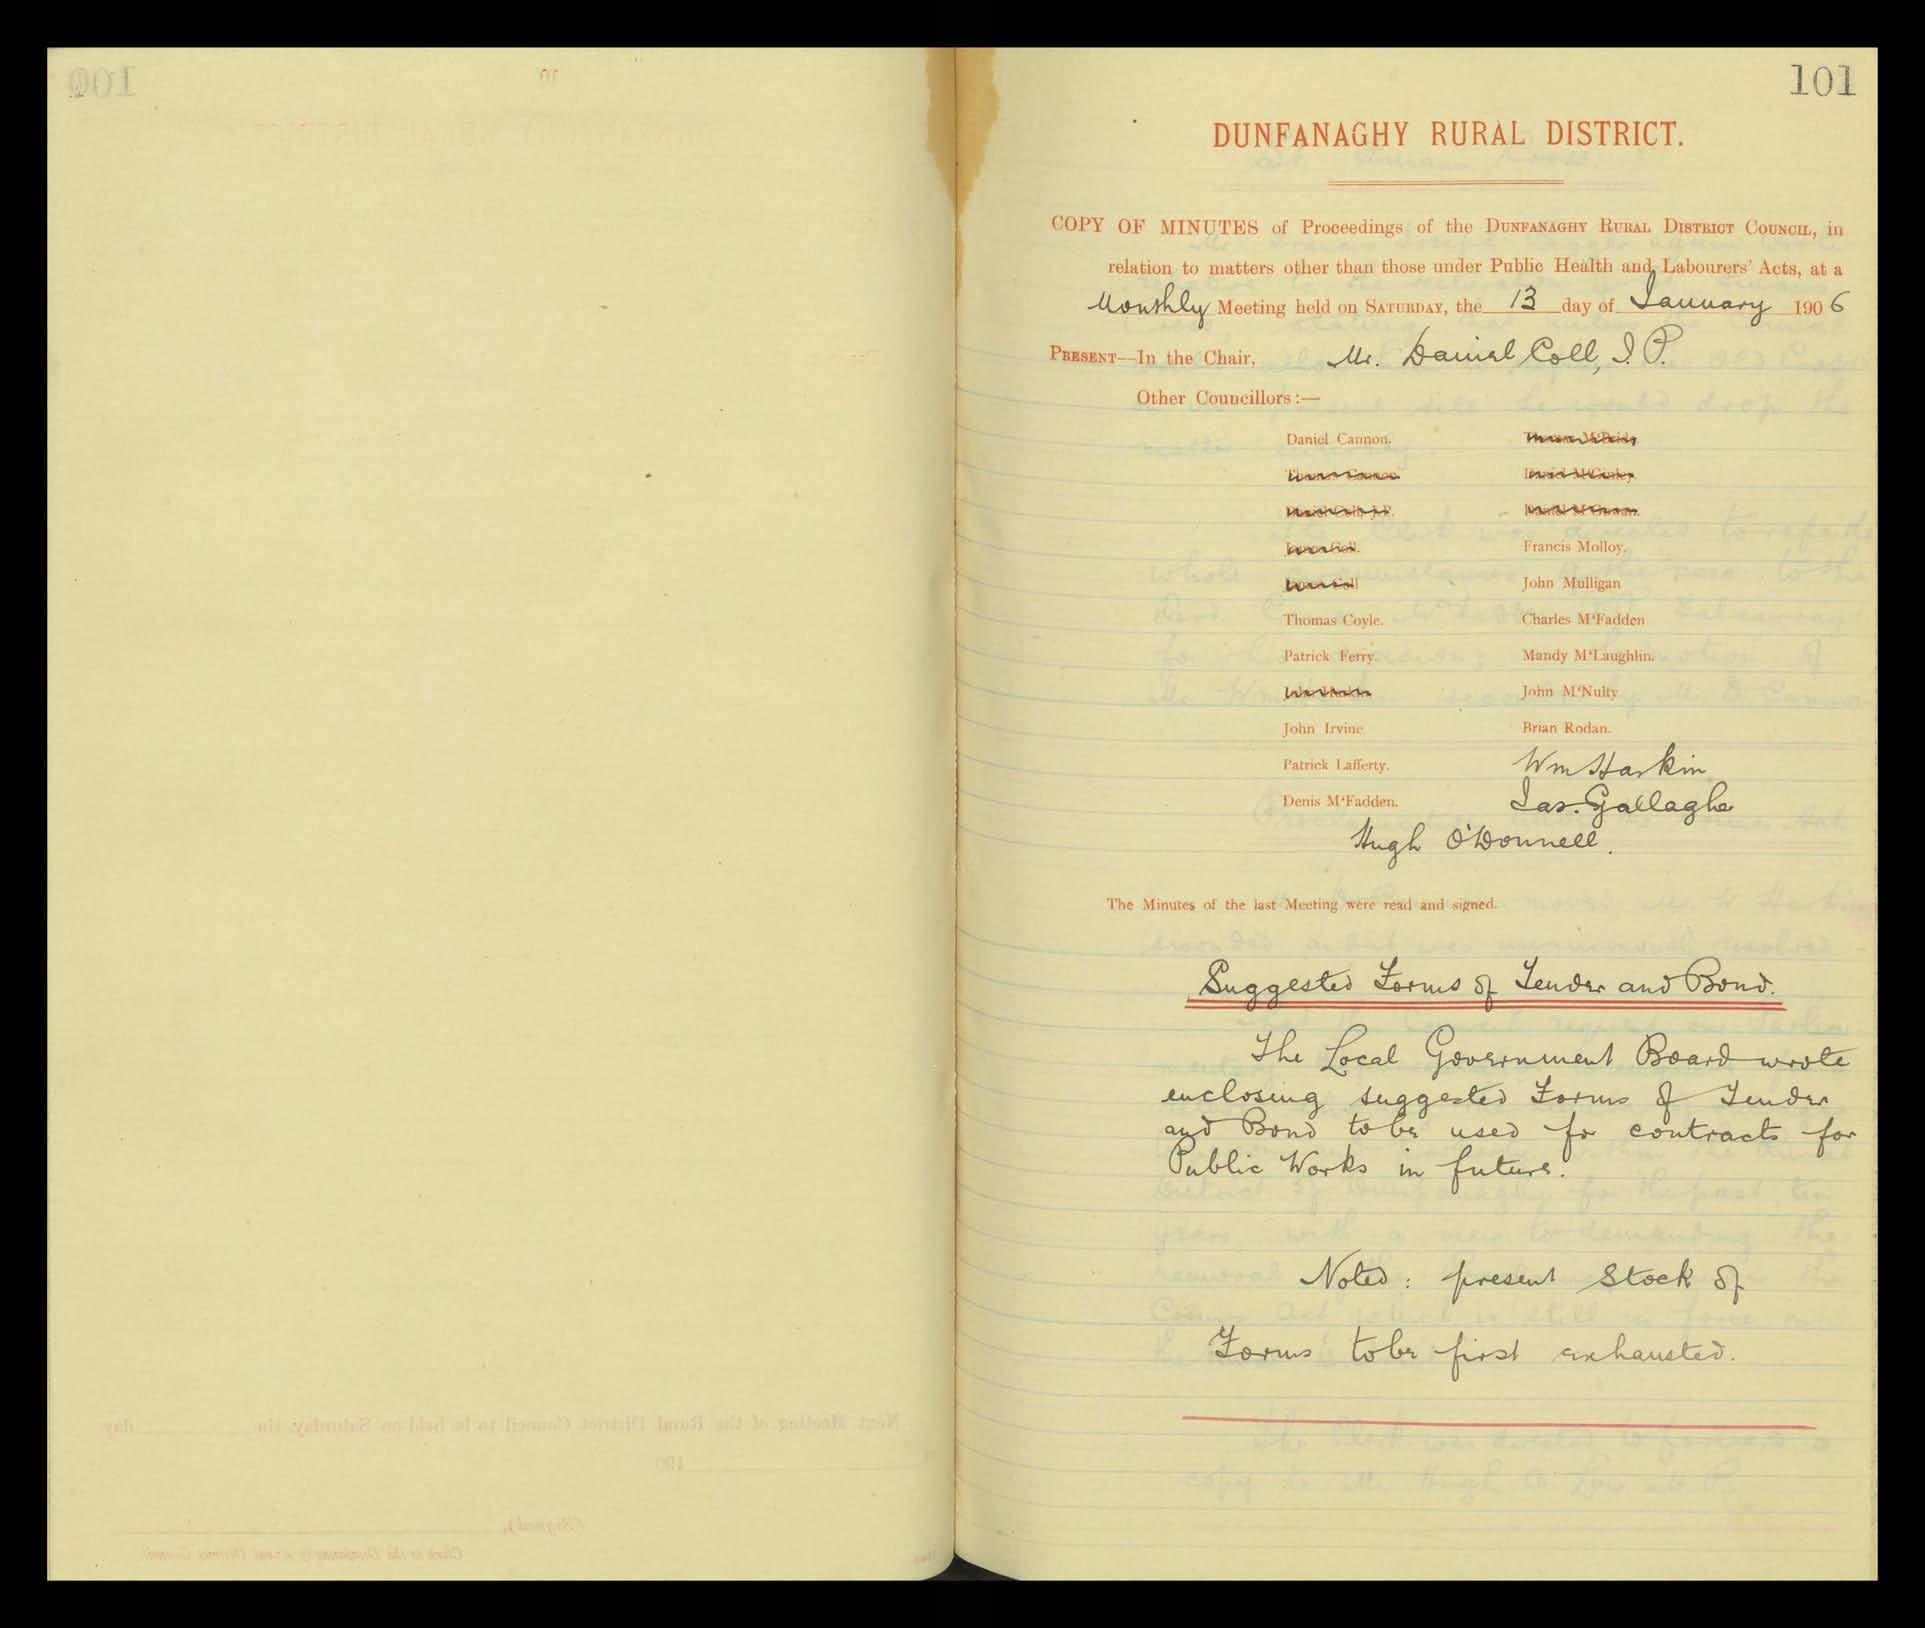 101
DUNFANAGHY RURAL DISTRICT.
COPY OF MINUTES of Proceedings of the DUNFANAGHY RURAL DISTRICT COUNCIL, in
relation to matters other than those under Public Health and Labourers' Acts, at a
Monthly Meeting held on SATURDAY, the 13 day of January 1906
PRESENT—In the Chair, Mr. Daniel Coll, J. P.
Other Councillors:—
Daniel Cannon.
Thomas Cannon
Thomas Coyle.
Patrick Ferry.
John Irvine
Patrick Lafferty.
Denis M'Fadden.
Francis Molloy.
John Mulligan
Charles M'Fadden
Mandy M'Laughlin.
John M'Nulty
Brian Rodan.
Wm Harkin
Jas. Gallagher
Hugh O'Donnell.
The Minutes of the last Meeting were read and signed.
Suggested Forms of Tender and Bond.
The Local Government Board wrote
enclosing suggested Forms of Tender
and Bond to be used for contracts for
Public Works in future.
Noted: present Stock of
Forms to be first exhausted.